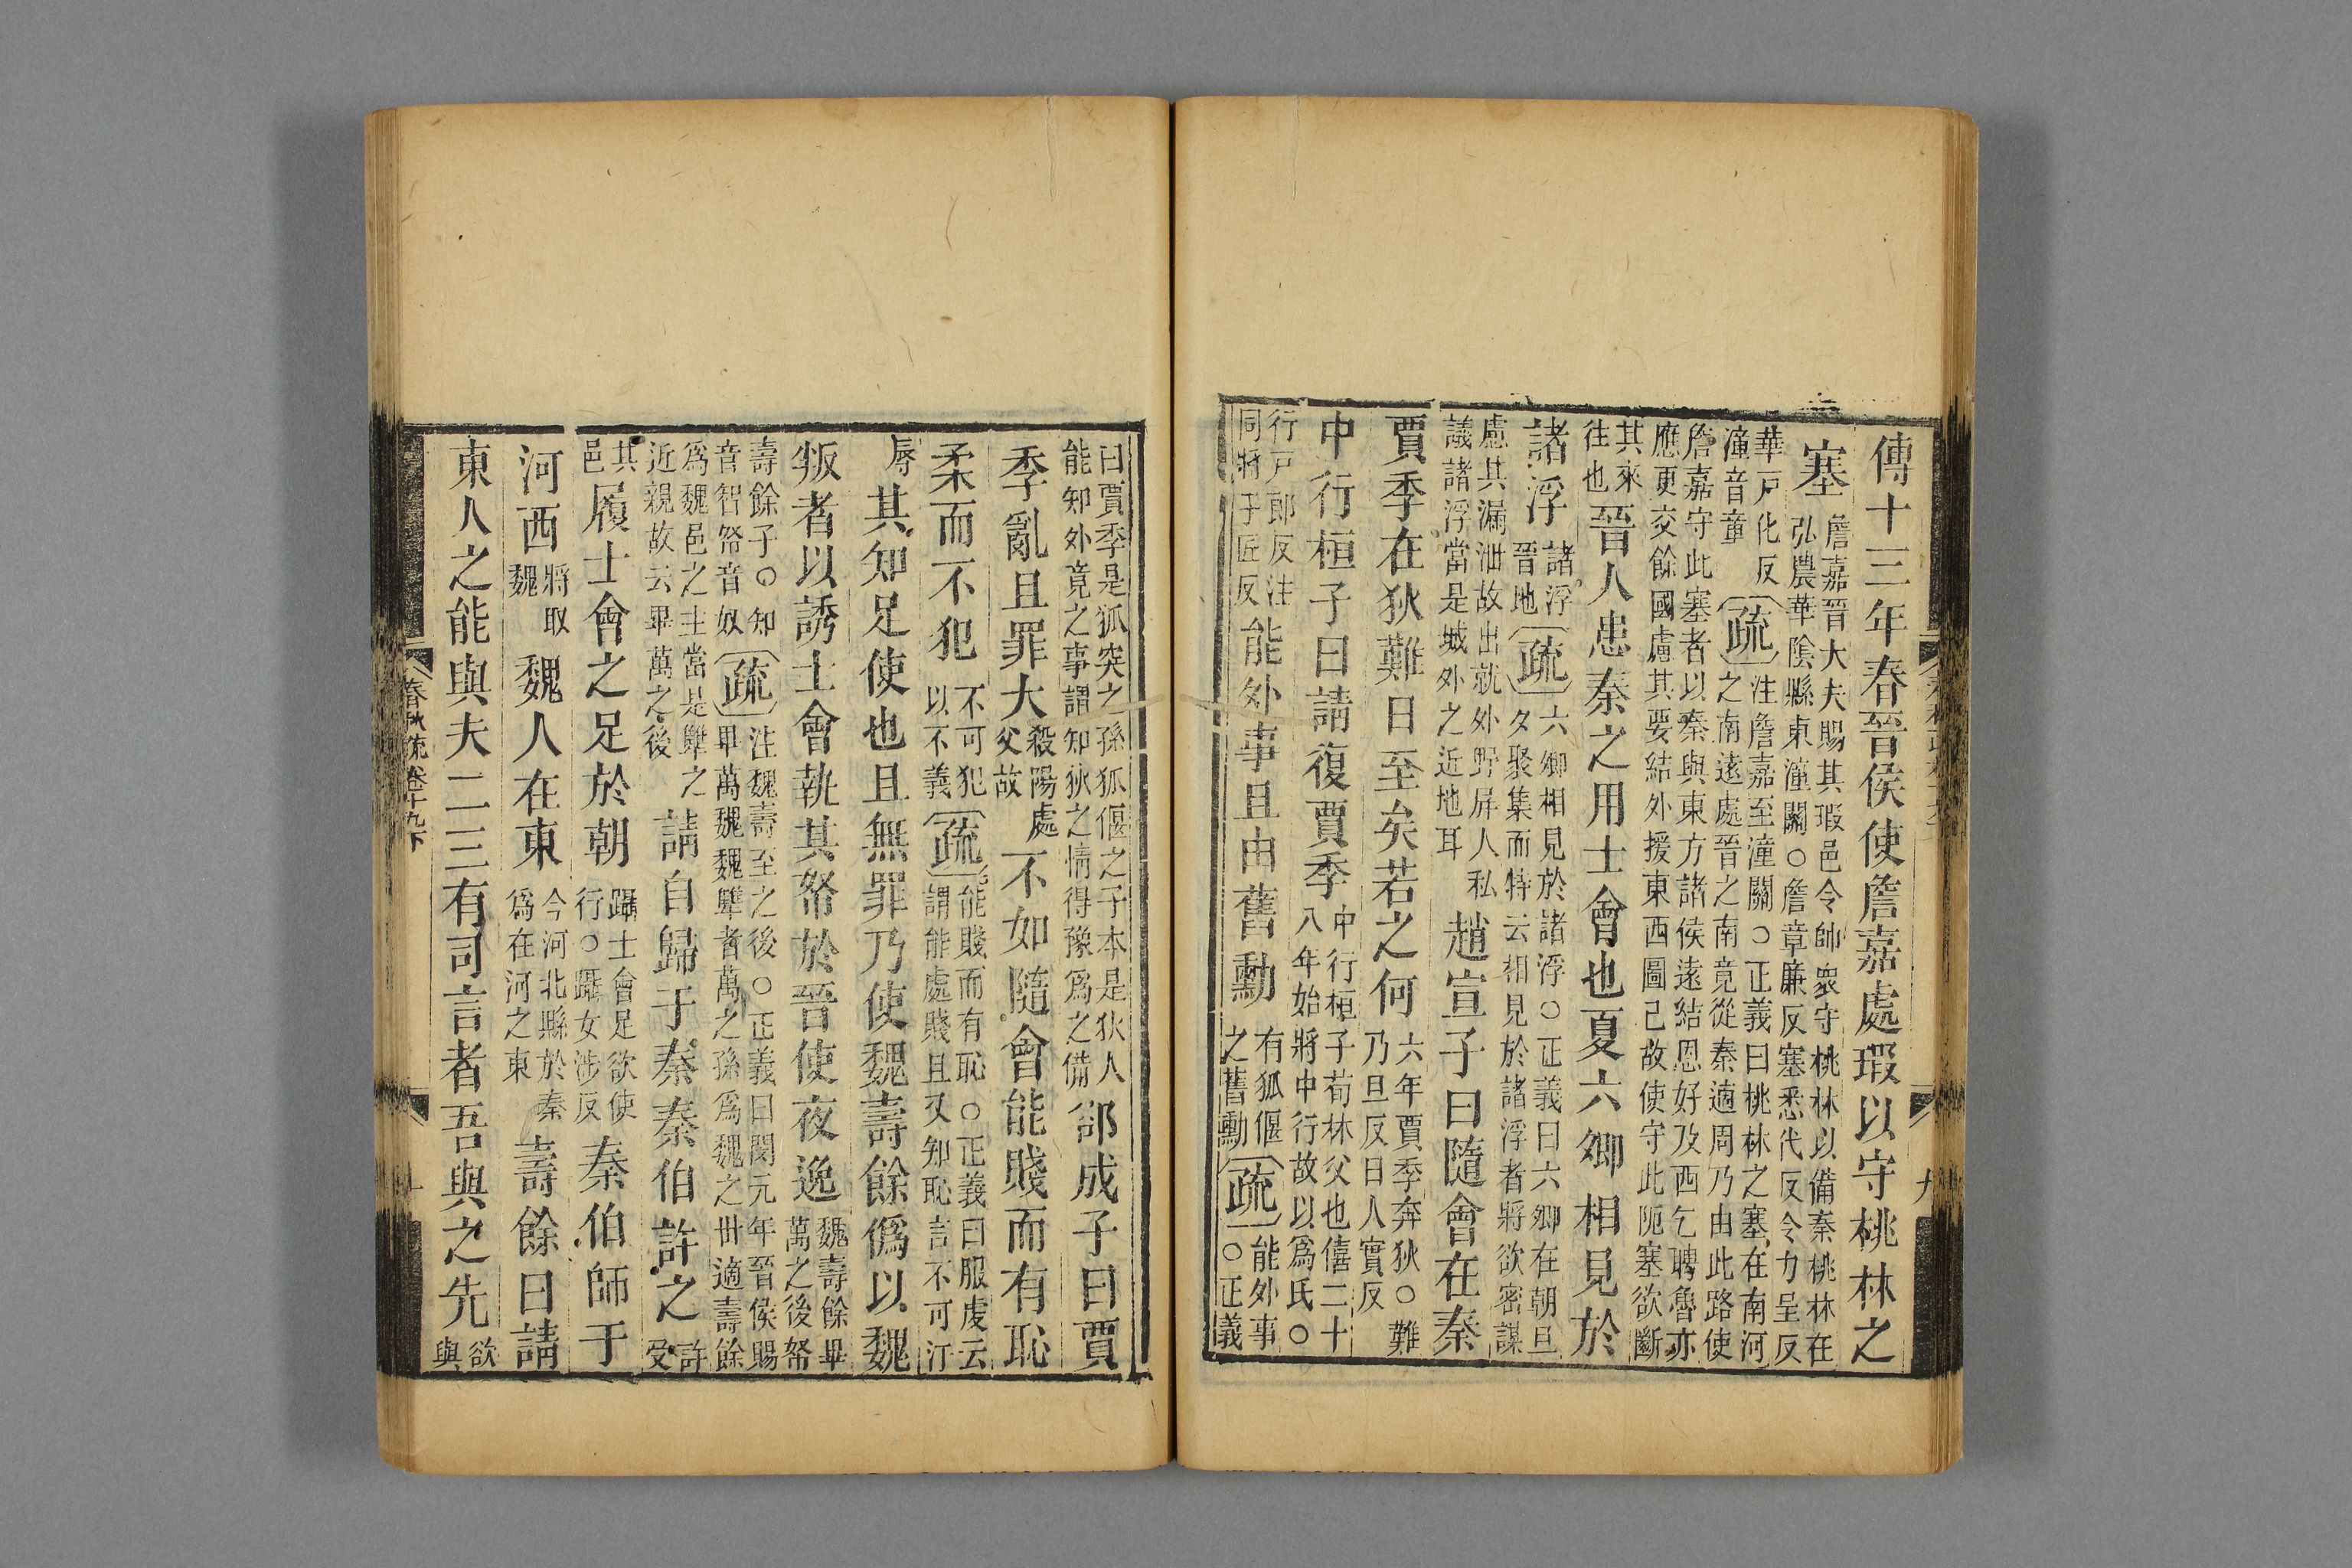 傳十三年春晉侯使詹嘉處瑕以守桃林之
塞
詹嘉晉大夫賜其瑕邑令帥衆守桃林以備秦桃林在
弘農華隂縣東潼關○詹章廉反塞悉代反令力呈反
華戸化反
潼音童
疏
注詹嘉至潼關○正義曰桃林之塞在南河
之南遠處晉之南竟從秦適周乃由此路使
詹嘉守此塞者以秦與東方諸侯遠結恩好及西乞聘魯亦
應更交餘國慮其要結外援東西圖己故使守此阨塞欲斷
其來
往也
晉人患秦之用士會也夏六卿相見於
諸浮
諸浮
晉地
疏
六卿相見於諸浮○正義曰六卿在朝旦
夕聚集而特云相見於諸浮者將欲密謀
慮其漏泄故出就外野屏人私
議諸浮當是城外之近地耳
趙宣子曰隨會在秦
賈季在狄難日至矣若之何
六年賈季奔狄○難
乃旦反日人實反
中行桓子曰請復賈季
中行桓子荀林父也僖二十
八年始將中行故以爲氏○
行戸郎反注
同將子匠反
能外事且由舊勳
有狐偃
之舊勳
疏
能外事
○正義
曰賈季是狐突之孫狐偃之子本是狄人
能知外竟之事謂知狄之情得豫爲之備
郤成子曰賈
季亂且罪大
殺陽處
父故
不如隨會能賤而有恥
柔而不犯
不可犯
以不義
疏
能賤而有恥○正義曰服虔云
謂能處賤且又知恥言不可汙
辱
其知足使也且無罪乃使魏壽餘僞以魏
叛者以誘士會執其帑於晉使夜逸
魏壽餘畢
萬之後帑
壽餘子○知
音智帑音奴
疏
注魏壽至之後○正義曰閔元年晉侯賜
畢萬魏魏犨者萬之孫爲魏之世適壽餘
爲魏邑之主當是犨之
近親故云畢萬之後
請自歸于秦秦伯許之
許
受
其
邑
履士會之足於朝
躡士會足欲使
行○躡女涉反
秦伯師于
河西
將取
魏
魏人在東
今河北縣於秦
爲在河之東
壽餘曰請
東人之能與夫二三有司言者吾與之先
欲
與
春秋疏卷十九下
九